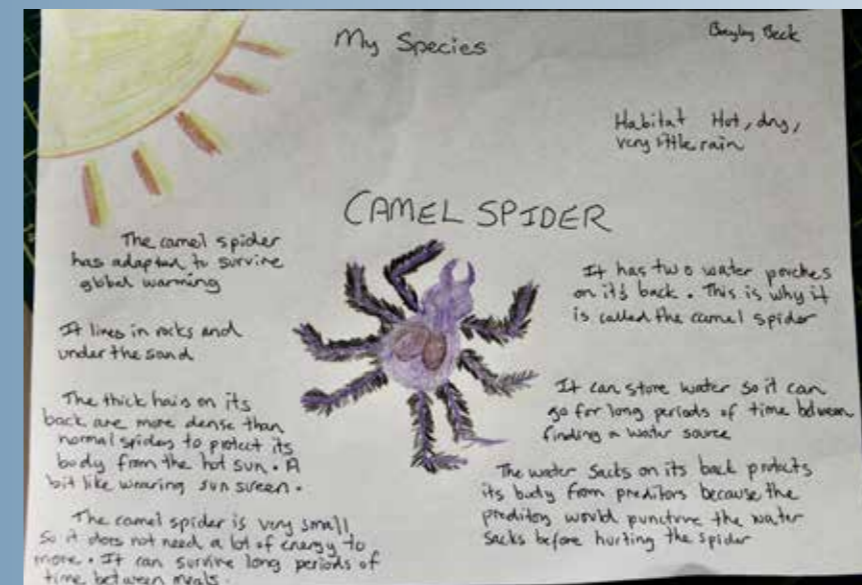 My Species
Bayley Beck
Habitat Hot, dry,
very little rain
CAMEL SPIDER
The camel spider
has adapted to survive
global warming
It lives in rocks and
under the sand
The thick hairs on its
back are more dense than
normal spiders to protect its
body from the hot sun. A
bit like wearing sun screen.
The camel spider is very small
so it does not need a lot of energy to
move. It can survive long periods of
time between meals.
It has two water pouches
on its back. This is why it
is called the camel spider
It can store water so it can
go for long periods of time between
finding a water source
The water sacks on its back protects
its body from preditors because the
preditors would puncture the water
sacks before hurting the spider